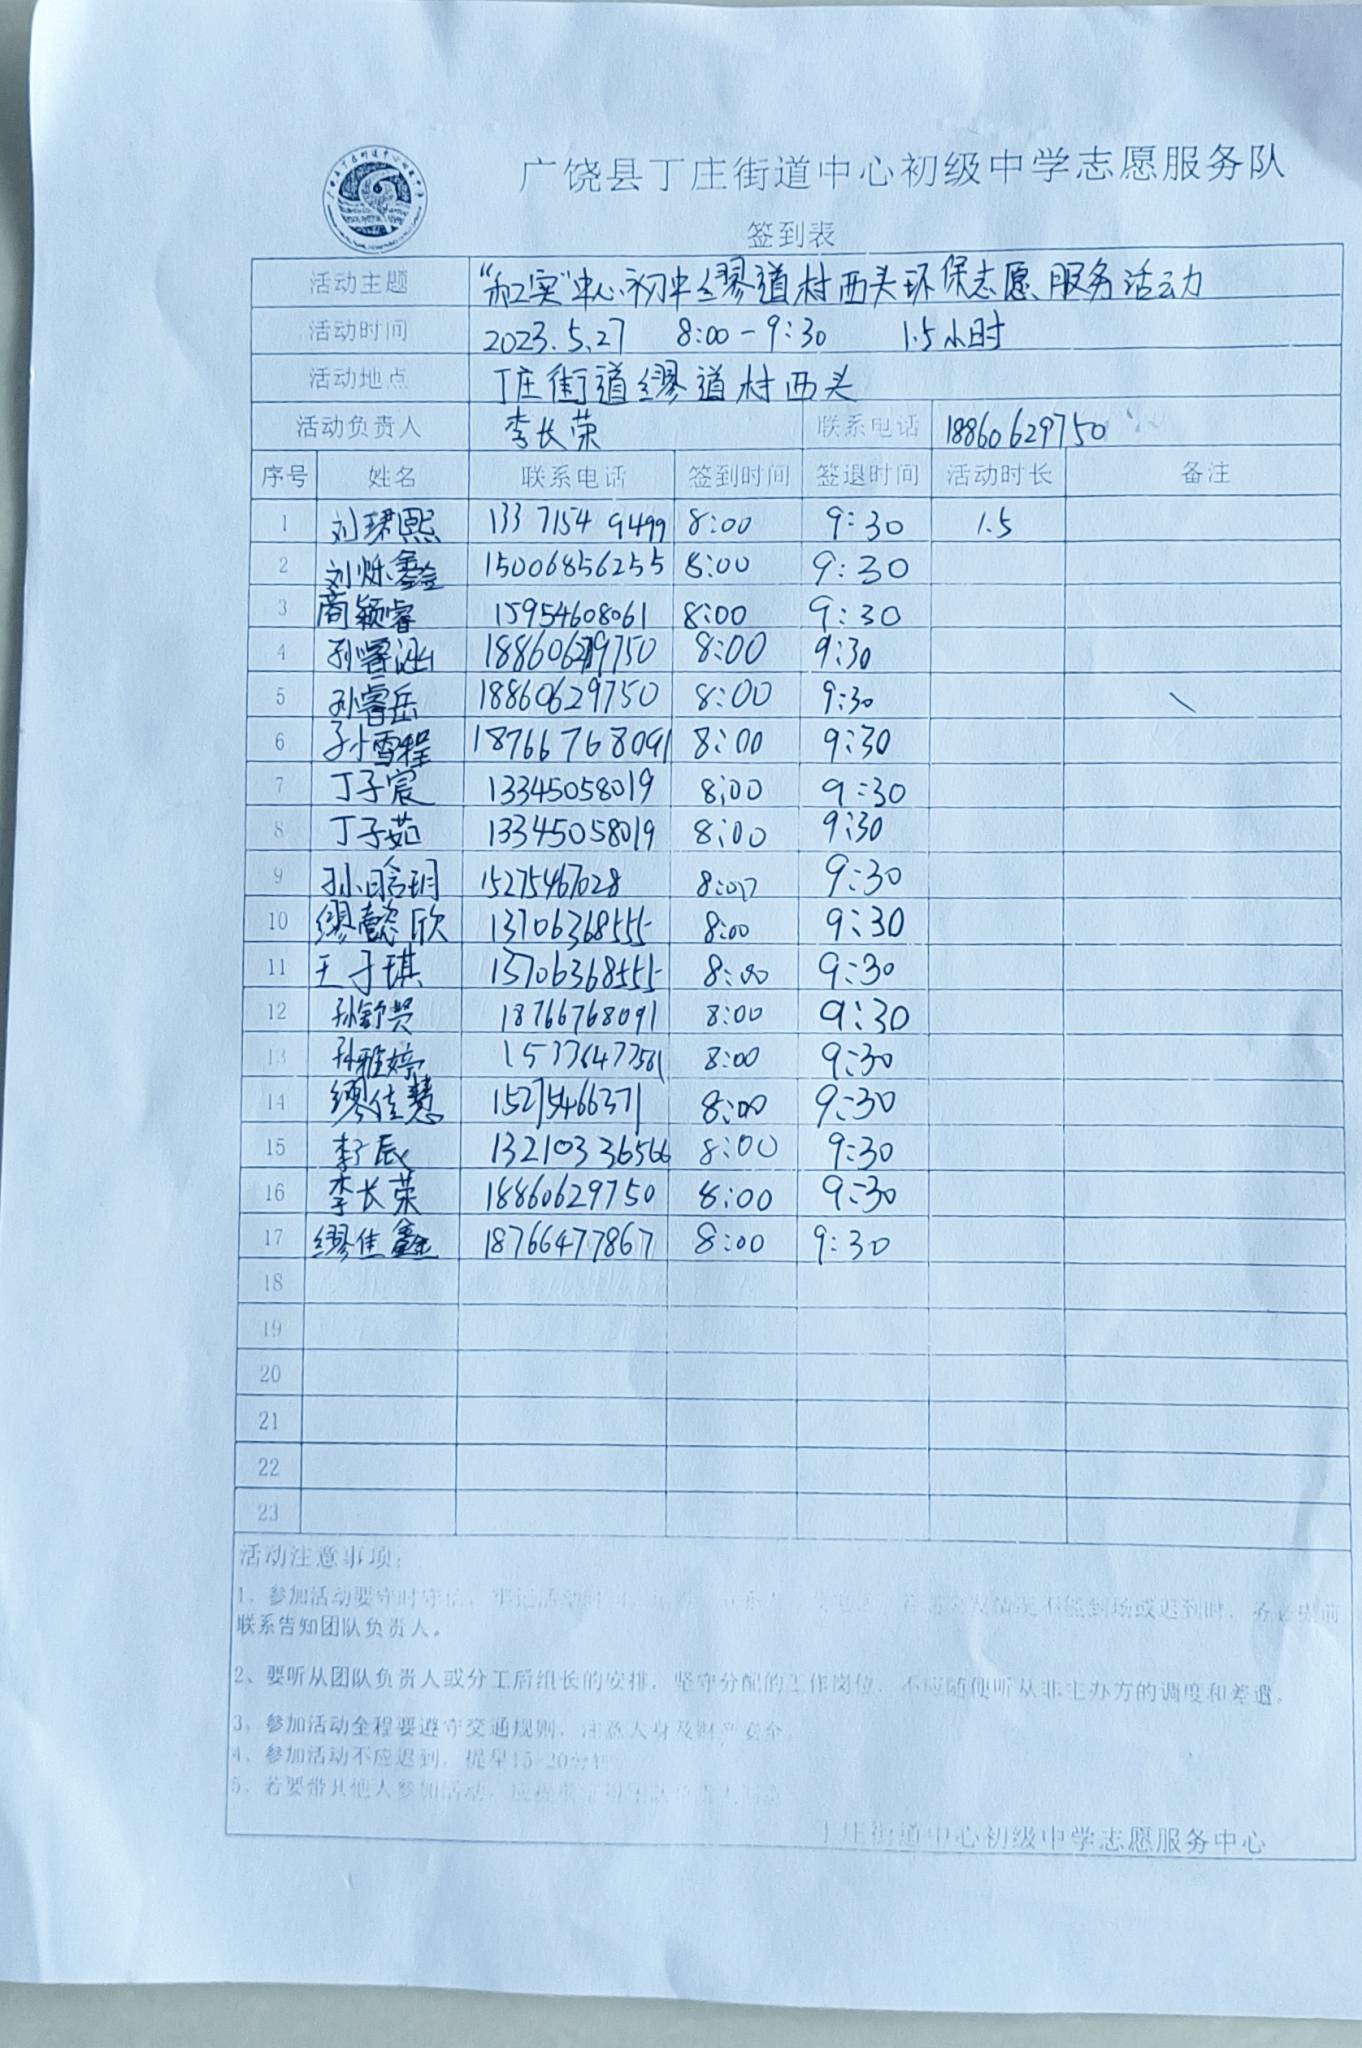 广饶县丁庄街道中心初级中学志愿服务队
签到表
活动主题 “和实”中心初中缪道村西头环保志愿服务活动
活动时间 2023.5.27 8:00-9:30 1.5小时
活动地点 丁庄街道缪道村西头
活动负责人 李长荣 联系电话 18860629750
序号 姓名 联系电话 签到时间 签退时间 活动时长 备注
1 刘珺熙 13371549499 8:00 9:30 1.5
2 刘烁鑫 15006856255 8:00 9:30
3 商颖睿 15954608061 8:00 9:30
4 孙睿涵 18860629750 8:00 9:30
5 孙睿岳 18860629750 8:00 9:30
6 孙雪程 18766768091 8:00 9:30
7 丁子宸 13345058019 8:00 9:30
8 丁子茹 13345058019 8:00 9:30
9 孙晗玥 15275467028 8:00 9:30
10 缪懿欣 13706368555 8:00 9:30
11 王子琪 13706368555 8:00 9:30
12 孙钦 18766768091 8:00 9:30
13 孙雅婷 8:00 9:30
14 缪佳慧 15275466371 8:00 9:30
15 李辰 13210336566 8:00 9:30
16 李长荣 18860629750 8:00 9:30
17 缪佳鑫 18766477867 8:00 9:30
18
19
20
21
22
23
活动注意事项：
1、参加活动要守时守信，牢记活动时间 不能到场或迟到时，务必提前
联系告知团队负责人。
2、要听从团队负责人或分工后组长的安排，坚守分配的工作岗位，不应随便听从非主办方的调度和差遣。
3、参加活动全程要遵守交通规则，注意人身及财产安全。
4、参加活动不应迟到，提早15-20分钟
5、若要带其他人参加活动，应提前
丁庄街道中心初级中学志愿服务中心